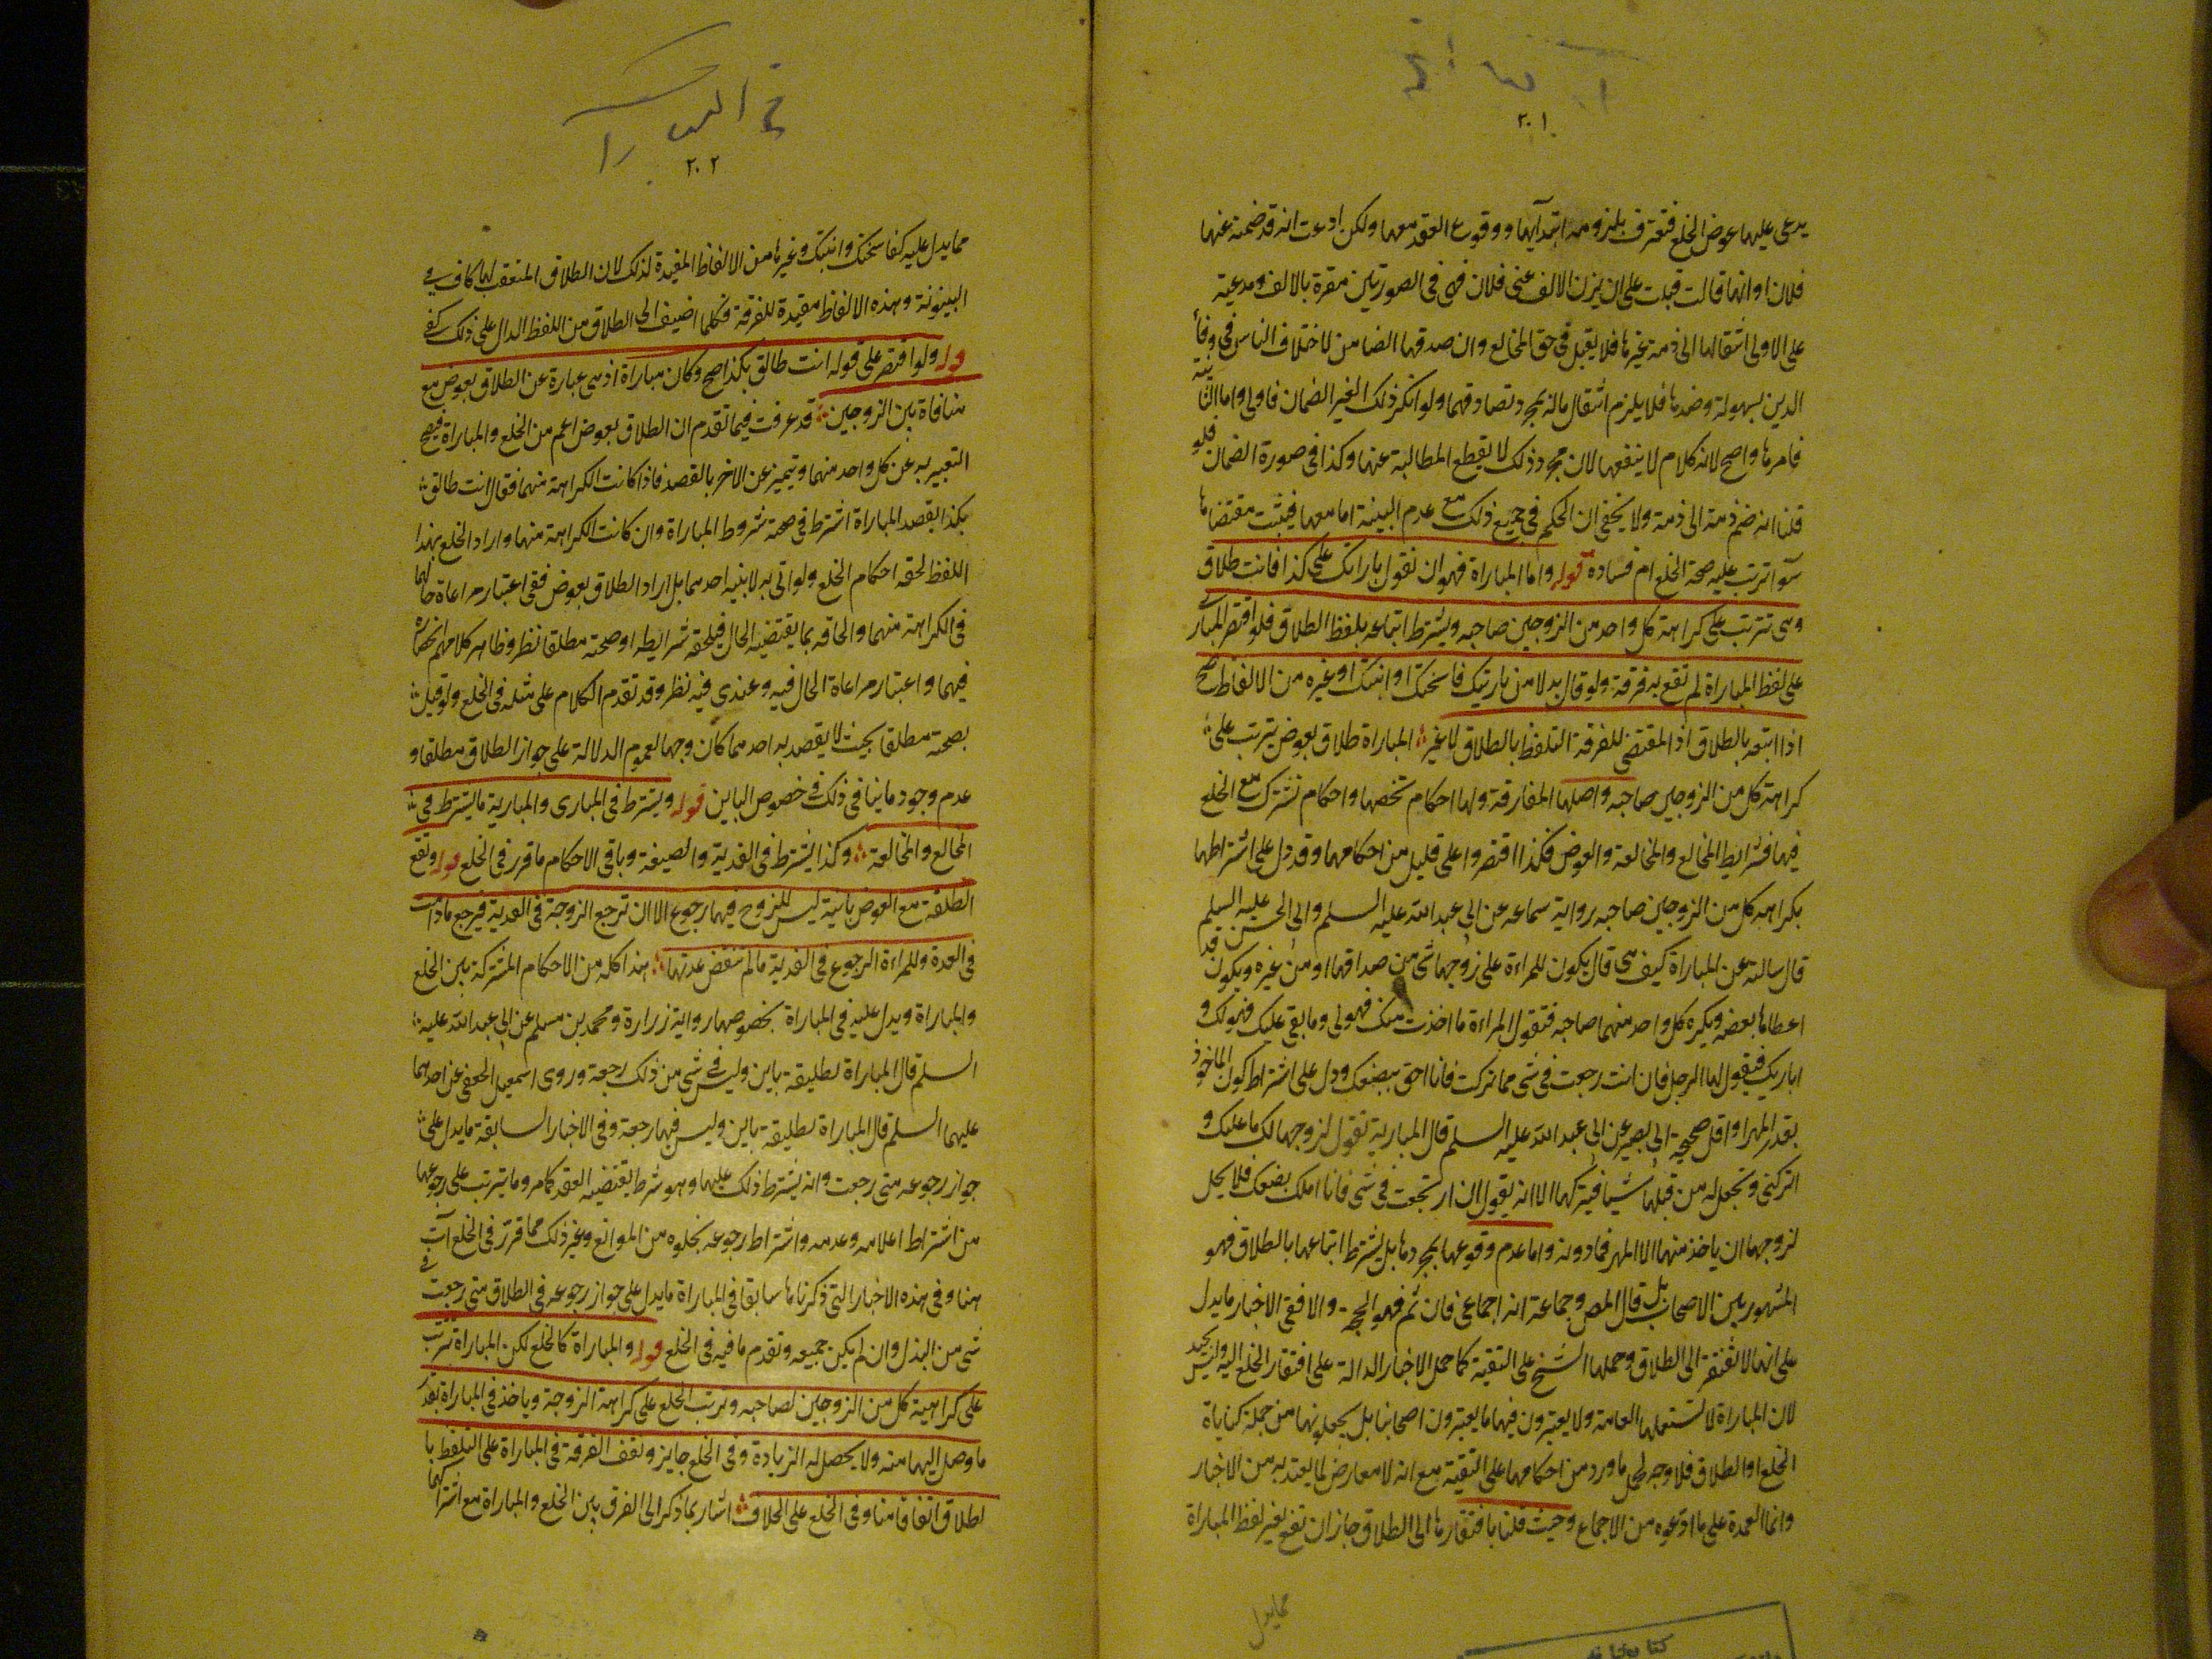 ٢٠١
يدعى عليها عوض الخلع فتعترف بلزومه ابتداءيها ووقوع العقد معها ولكن ادعت انه قد ضمنه عنها
فلان او انها قالت قبلت على ان يزن الالف عنى فلان فهى فى الصورتين مقرة بالالف ومدعية
على الاولى انتقالها الى ذمة غيرها فلا يقبل فى حق المخالع وان صدقها الضامن لاختلاف الناس فى وفاء
الدين بسهولة وضدها فلا يلزم انتقال ماله بمجرد تصادقهما ولو انكر ذلك الغير الضمان فاولى واما الثانية
فامرها واضح لانه كلام لا ينفعها لان مجرد ذلك لا يقطع المطالبة عنها وكذا فى صورة الضمان فلو
قلنا انه ضم ذمة الى ذمة ولا يخفى ان الحكم فى جميع ذلك مع عدم البينة اما معها فيثبت مقتضاها
سوآ ترتب عليه صحة الخلع ام فساده قوله واما المباراة فهو ان نقول باراتك على كذا فانت طلاق
وهى تترتب على كراهة كل واحد من الزوجين صاحبه ويشترط اتباعه بلفظ الطلاق فلو اقتصر المبارى
على لفظ المباراة لم تقع به فرقة ولو قال بدلا من بارتيك فاسختك او ابنتك او غيره من الالفاظ صح
اذا اتبعه بالطلاق اذ المقتضى للفرقة التلفظ بالطلاق لا غير المباراة طلاق بعوض يترتب على
كراهة كل من الزوجين صاحبه واصلها المفارقة ولها احكام تخصها واحكام تشترك مع الخلع
فيها فشرايط المخالع والمخالعة والعوض فكذا اقتصروا على قليل من احكامها وقد دل على اشتراطها
بكراهة كل من الزوجين صاحبه رواية سماعه عن ابى عبد الله عليه السلم وابى الحسن عليه السلم
قال سالته عن المباراة كيف هى قال يكون للمراءة على زوجها شى من صداقها او من غيره ويكون قد
اعطاها بعضه ويكره كل واحد منهما صاحبه فتقول المراءة ما اخذت منك فهو لى وما بقى عليك فهو لك و
اباريك فيقول لها الرجل فان انت رجعت فى شى مما تركت فانا احق ببضعك ودل على اشتراط كون الماخوذ
بقدر المهر او اقل صحيحة ابى بصير عن ابى عبد الله عليه السلم قال المبارية تقول لزوجها لك ما عليك و
اتركنى وتجعل له من قبلها شيئا فيتركها الا انه يقول ان ارتجعت فى شى فانا املك ببضعك فلا يحل
لزوجها ان ياخذ منها الا المهر فما دونه واما عدم وقوعها بمجردها بل يشترط اتباعها بالطلاق فهو
المشهور بين الاصحاب بل قال المص وجماعة انه اجماعى فان تم فهو الحجة والا ففى الاخبار ما يدل
على انها لا تفتقر الى الطلاق وحملها الشيخ على التقية كما حمل الاخبار الدالة على افتقار الخلع اليه وليس بجيد
لان المباراة لا تستعملها العامة ولا يعتبرون فيها ما يعتبرون اصحابنا بل يجعلونها من جملة كنايات
الخلع او الطلاق فلا وجه لحمل ما ورد من احكامها على التقية مع انه لا معارض لها يعتد به من الاخبار
وانما العمدة على ما ادعوه من الاجماع وحيث قلنا بافتقارها الى الطلاق جاز ان تقع بغير لفظ المباراة
مما يدل
٢٠٢
مما يدل عليه كفاسختك وابنتك وغيرها من الالفاظ المفيدة لذلك لان الطلاق المتعقب لها كاف فى
البينونة وهذه الالفاظ مفيدة للفرقة فكلما اضيف الى الطلاق من اللفظ الدال على ذلك كفى
قوله ولو اقتصر على قوله انت طالق بكذا صح وكان مباراة اذ هى عبارة عن الطلاق بعوض مع
منافاة بين الزوجين قد عرفت فيما تقدم ان الطلاق بعوض اعم من الخلع والمباراة فيصح
التعبير به عن كل واحد منهما ويتميز عن الاخر بالقصد فاذا كانت الكراهة منهما فقال انت طالق
بكذا بقصد المباراة اشترط فى صحته شروط المباراة وان كانت الكراهة منها واراد الخلع بهذا
اللفظ لحقه احكام الخلع ولو اتى به لا بنية احدهما بل اراد الطلاق بعوض ففى اعتبار مراعاة حالهما
فى الكراهة منهما والحاقه بما يقتضيه الحال فيلحقه شرايطه او صحته مطلقا نظر وظاهر كلامهم انحصاره
فيهما واعتبار مراعاة الحال فيه وعندى فيه نظر وقد تقدم الكلام على مثله فى الخلع ولو قيل
بصحته مطلقا بحيث لا يقصد به احدهما كان وجها لعموم الدلالة على جواز الطلاق مطلقا و
عدم وجود ما ينافى ذلك فى خصوص الباين قوله ويشترط فى المبارى والمبارية ما يشترط فى
المخالع والمخالعة وكذا يشترط فى الفدية والصيغة وباقى الاحكام ما قرر فى الخلع قوله وتقع
الطلقة مع العوض باينة ليس للزوج فيها رجوع الا ان ترجع الزوجة فى الفدية فيرجع ما دامت
فى العدة وللمراءة الرجوع فى الفدية ما لم تنقض عدتها هذا كله من الاحكام المشتركة بين الخلع
والمباراة ويدل عليه فى المباراة بخصوصها رواية زرارة ومحمد بن مسلم عن ابى عبد الله عليه
السلم قال المباراة تطليقة باين وليس فى شى من ذلك رجعة وروى اسمعيل الجعفى عن احدهما
عليهما السلم قال المباراة تطليقة باين وليس فيها رجعة وفى الاخبار السابقة ما يدل على
جواز رجوعه متى رجعت وانه يشترط ذلك عليها وهو شرط يقتضيه العقد كما مر وما يترتب على رجوعها
من اشتراط اعلامه وعدمه واشتراط رجوعه بخلوه من الموانع وغير ذلك مما قرر فى الخلع آت
هنا وفى هذه الاخبار التى ذكرناها سابقا فى المباراة ما يدل على جواز رجوعه فى الطلاق متى رجعت فى
شى من البذل وان لم يكن جميعه وتقدم ما فيه فى الخلع قوله والمباراة كالخلع لكن المباراة تترتب
على كراهية كل من الزوجين لصاحبه وترتب الخلع على كراهة الزوجة وياخذ فى المباراة بقدر
ما وصل اليها منه ولا يحصل له الزيادة وفى الخلع جايز وتقف الفرقة فى المباراة على التلفظ با
لطلاق اتفاقا منا وفى الخلع على الخلاف اشار بما ذكر الى الفرق بين الخلع والمباراة مع اشتراكهما